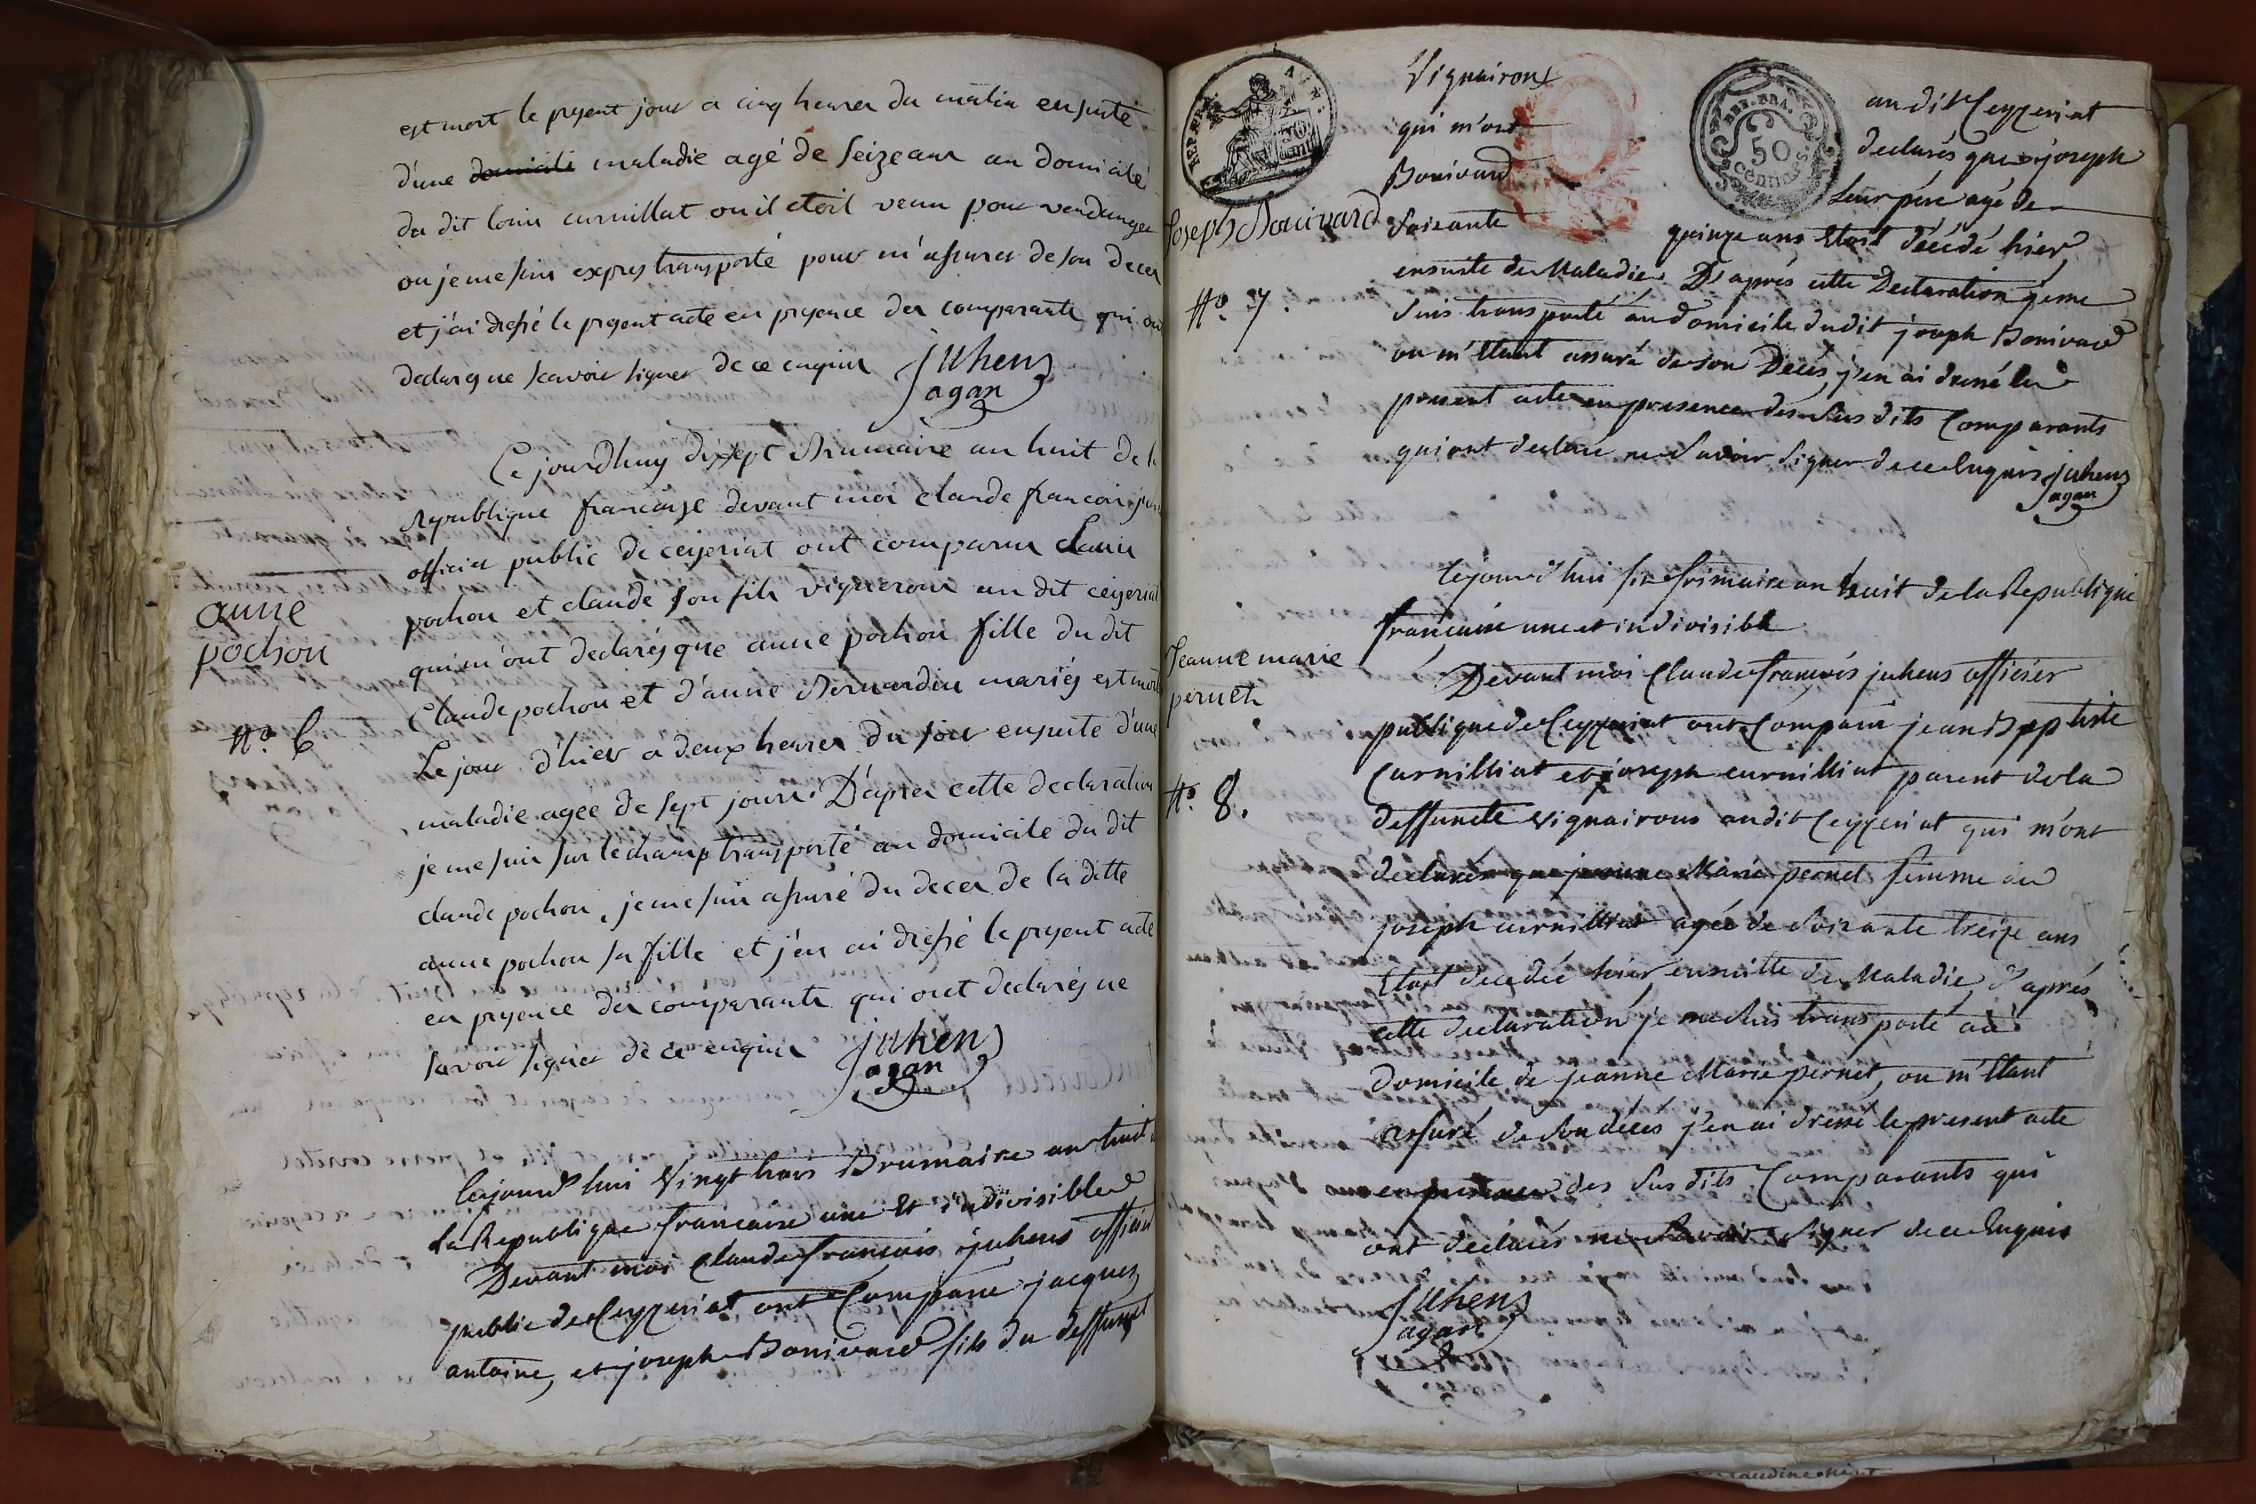 est mort le present jour a cinq heures du matin ensuite
d'une domicile maladie agé de seize ans au domicile
du dit louis curnillat ou il etoit venu pour vendanger
ou je me suis expres transporté pour m'assurer de son deces
et j'ai dressé le present acte en presence des comparants qui ont
declaré ne scavoir signer de ce enquis juhen
agan
Ce jourdhuy dixsept Brumaire an huit de la
republique francaise devant moi claude francois juhen
officier public de ceyzeriat ont comparu claude
pochon et claude son fils vignerons au dit ceyzeriat
qui m'ont declarés que anne pochon fille du dit
Claude pochon et d'anne Bernardin mariés est morte
anne
pochon
N.o 6
Le jour d'hier a deux heures du soir ensuite d'une
maladie agée de sept jours. D'apres cette declaration
je me suis sur le champ transporté au domicile du dit
claude pochon, je me suis assuré du deces de la ditte
anne pochon sa fille et j'en ai dressé le present acte
en presence des comparants qui ont declarés ne
savoir signer de ce enquis juhen
agan
Cejourd'hui Vingt trois Brumaire an huit de
la Republique francaise une Et indivisible
Devant moi Claude francois juhens officier
public de Ceyzeriat ont Comparu jacques
antoine, et joseph Bonivard fils du deffunct
REP. FRA.
50
cent
AIN.
REP. FRA.
50
centimes.
Vignairons
au dit Ceyzeriat
qui m'ont
declarés que joseph
Bonivard
leur père agé de
Joseph Bonivard
soixante
quinze ans Etoit décédé hier
N.o 7.
ensuite de Maladie. D'après cette Declaration je me
suis transporté au domicile du dit joseph Bonivard
ou m'Etant assuré de son Decés, j'en ai dressé le
present acte en presence des sus dits Comparants
qui ont declaré ne savoir signer de ce Enquis juhens
agan
Cejourd'hui six frimaire an huit de la Republique
francaise une et indivisible
Jeanne marie
pernet
N.o 8.
Devant moi Claude francois juhens officier
publique de Ceyzeriat ont Comparu jean Baptiste
Curnilliat et joseph curnilliat parent de la
deffuncte vignairons au dit Ceyzeriat qui m'ont
declarés que jeanne Marie pernet femme du
joseph curnilliat agée de soixante treize ans
Etoit decedée hier, ensuitte de Maladie, d'aprés
cette declaration je me suis transporté au
domicile de jeanne Marie pernet, ou m'Etant
assuré de son décés j'en ai dressé le present acte
en presence des sus dits Comparants qui
ont declarés ne savoir signer de ce Enquis
juhens
agan